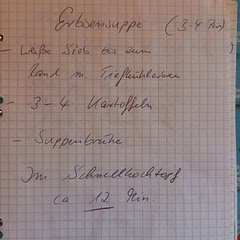 Erbsensuppe (3-4 Per.)
- weiße Sieb bis zum
Rand m. Tiefkühlerbsen
- 3-4 Kartoffeln
- Suppenbrühe
Im Schnellkochtopf
ca 12 Min.